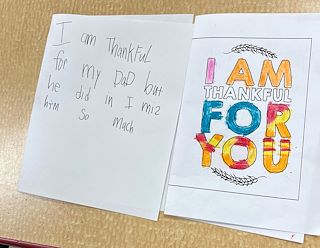 I am ThankFuL
for my DaD but
he did in I miz
him So Mach
I AM
THANKFUL
FOR
YOU